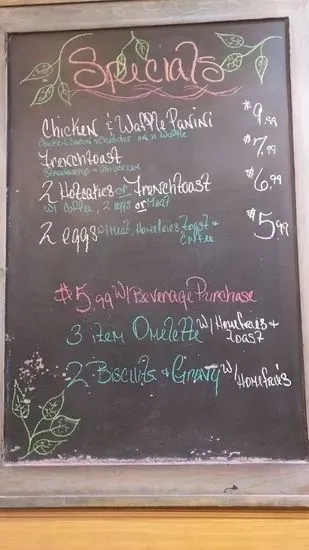 Specials
Chicken & Waffle Panini $9.99
Chicken, Bacon & Cheddar on a Waffle
Frenchtoast $7.99
Strawberries & Whipcream
2 Hotcakes or Frenchtoast $6.99
w/ Coffee, 2 eggs or Meat
2 eggs w/ Meat, Homefries Toast & $5.99
Coffee
$5.99 w/ Beverage Purchase
3 item Omelette w/ Homefries &
Toast
2 Biscuits & Gravy w/
Homefries